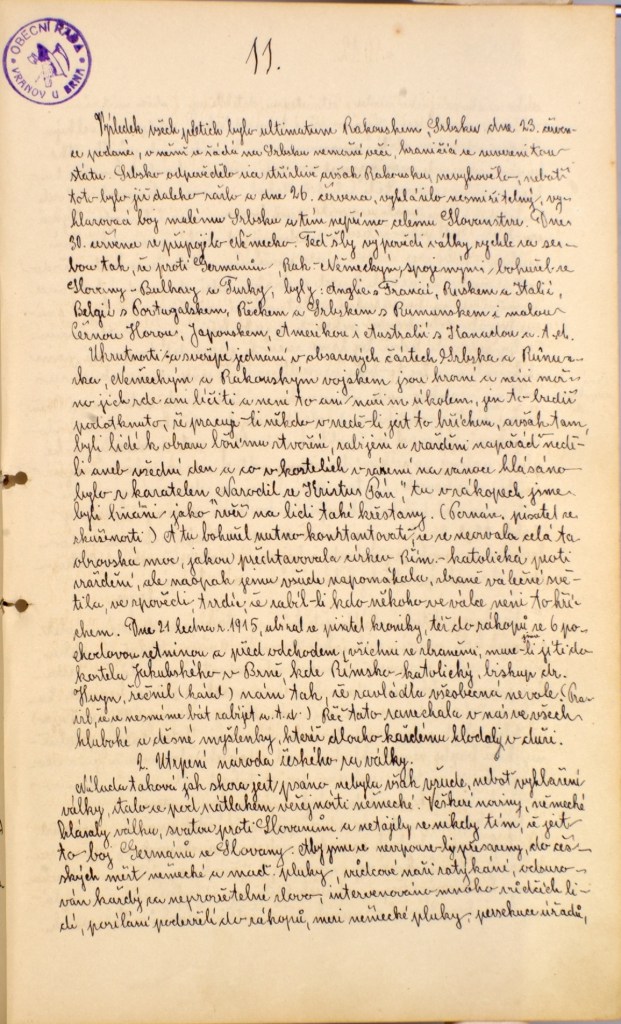 OBECNÍ RADA
VRANOV U BRNA
11.
Výsledek všech pletich bylo ultimatum Rakouskem Srbsku dne 23. červen-
ce podané, v němž se žádá na Srbsku nemožné věci, hraničící se suverenitou
statu. Srbsko odpovědělo sice zdrželivě avšak Rakousku nevyhovělo, neboť
toto bylo již daleko zašlo a dne 26. července, vyhlásilo nesmiřitelný, vy-
hlazovací boj malému Srbsku a tím nepřímo celému Slovanstvu. Dne
30. července se připojilo Německo. Teď šly výpovědi války rychle za se-
bou tak, že proti Germánům, Rak-Německým, spojeným bohužel se
Slovany-Bulhary a Turky, byly: Anglie s Francií, Ruskem a Italií,
Belgií s Portugalskem, Řeckem a Srbskem s Rumunskem i malou
Černou Horou, Japonskem, Amerikou i Australií s Kanadou a.t.d.
Ukrutnosti a surové jednání v obsazených částech Srbska a Rumun-
ska, Německým a Rakouským vojskem jsou hrozné a není mož-
no jich zde ani líčiti a není to ani naším úkolem, jen to budiž
podotknuto, že pracuje-li někdo v neděli jest to hříchem, avšak tam,
byli lidé k obrazu božímu stvoření, zabíjeni a vražděni napořád nedě-
li aneb všední den a co v kostelích v zázemí na vánoce hlásáno
bylo z kazatelen „Narodil se Kristus Pán,“ tu v zákopech jsme
byli hnáni jako zvěř na lidi také křesťany. (Poznám. pisatel ze
zkušenosti.) A tu bohužel nutno konstatovati, že se neozvala celá ta
obrovská moc, jakou představovala církev Řím.-katolická proti
vraždění, ale naopak jemu všude napomáhala, zbraně válečné svě-
tila, ve zpovědi, tvrdíc, že zabil-li kdo někoho ve válce není to hří-
chem. Dne 21 ledna r. 1915, ubíral se pisatel kroniky, též do zákopů se 6 po-
chodovou setninou a před odchodem, všichni se zbraněmi, museli jsme jíti do
kostela Jakubského v Brně, kde Římsko-katolický, biskup dr.
Huyn, řečnil (kázal) nám tak, že zavládla všeobecná nevole. (Pra-
vil, že se nesmíme bát zabíjet a.t.d.) Řeč tato zanechala v nás ve všech
hluboké a děsné myšlenky, které dlouho každému hlodaly v duši.
2. Utrpení národa českého za války.
Nálada taková jak shora jest psáno, nebyla však všude, neboť vyhlášení
války, stalo se pod nátlakem veřejnosti německé. Veškeré noviny, německé
hlásaly válku, svatou proti Slovanům a netajily se nikdy tím, že jest
to boj Germánů se Slovany. Aby jsme se nezpouze-ly přesazeny, do čes-
kých měst německé a maď. pluky, vůdcové naši zatýkáni, odsuzo-
ván každý za neprozřetelné slovo, internováno mnoho vůdčích li-
dí, posíláni podezřelí do zákopů, mezi německé pluky, persekuce úřadů,